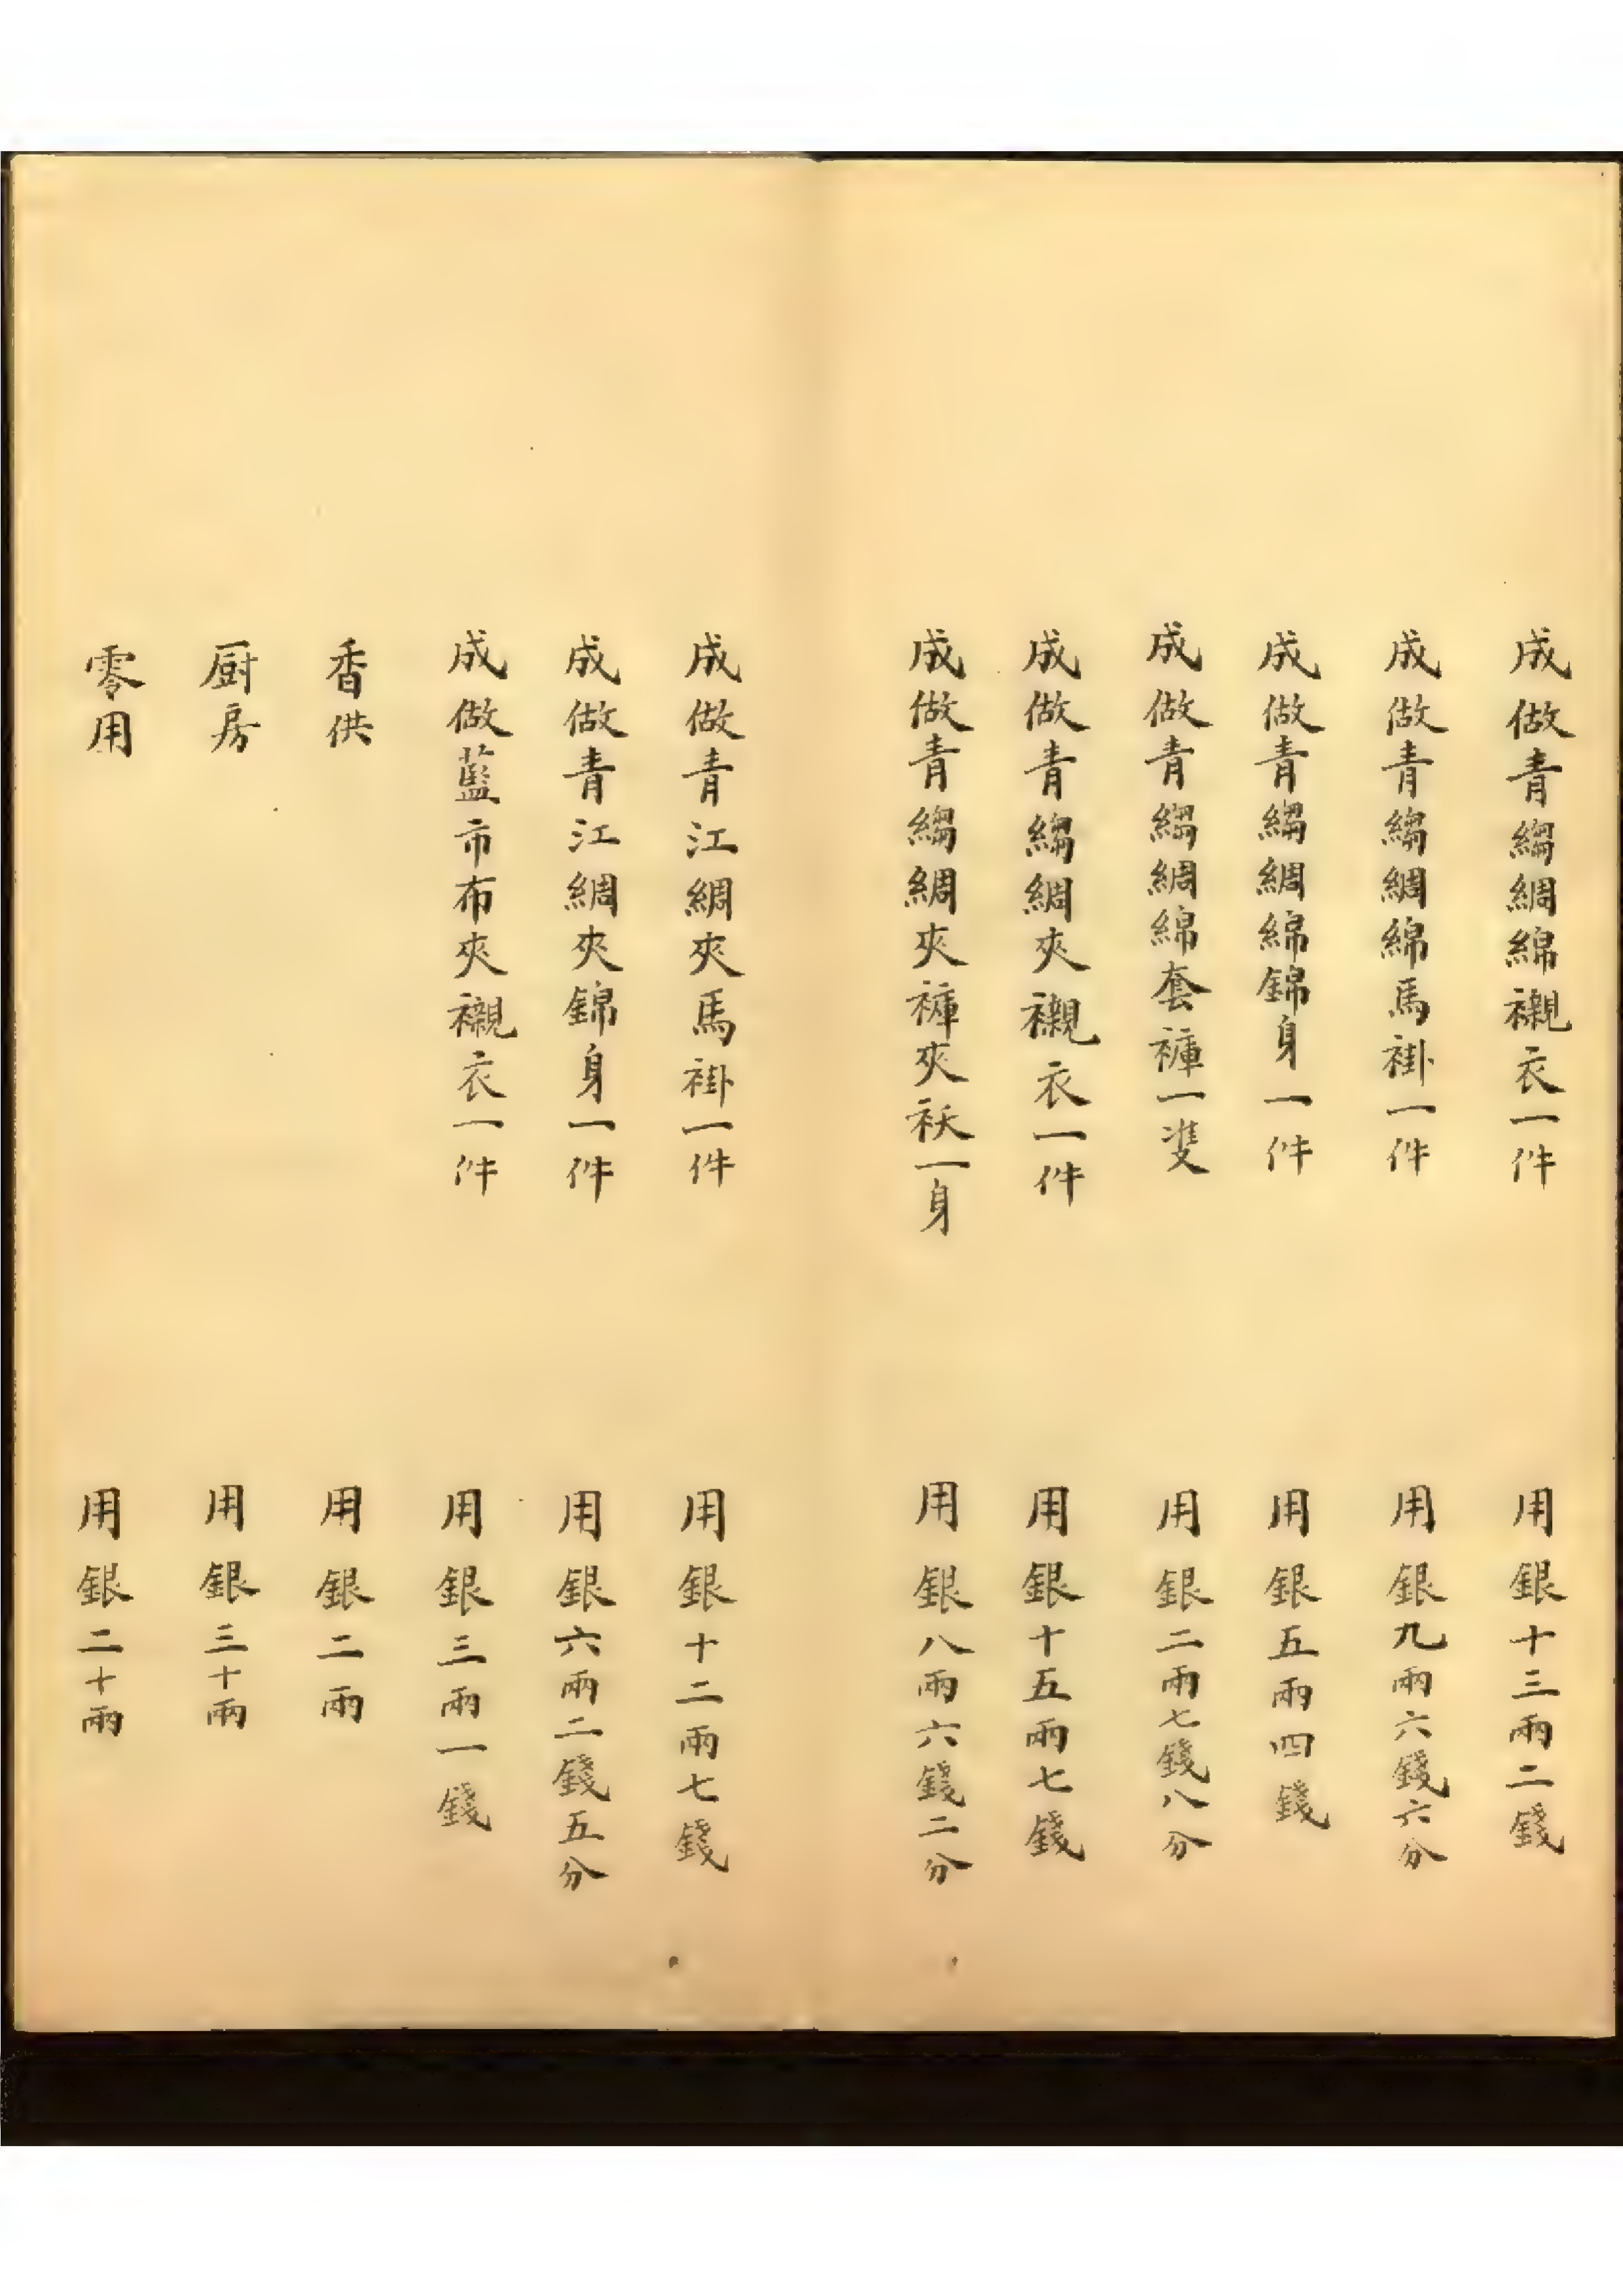 成做青縐綢綿襯衣一件 用銀十三兩二錢
成做青縐綢綿馬褂一件 用銀九兩六錢六分
成做青縐綢綿錦身一件 用銀五兩四錢
成做青縐綢綿套褲一雙 用銀二兩七錢八分
成做青縐綢夾襯衣一件 用銀十五兩七錢
成做青縐綢夾褲夾袄一身 用銀八兩六錢二分
成做青江綢夾馬褂一件 用銀十二兩七錢
成做青江綢夾錦身一件 用銀六兩二錢五分
成做藍市布夾襯衣一件 用銀三兩一錢
香供 用銀二兩
厨房 用銀三十兩
零用 用銀二十兩